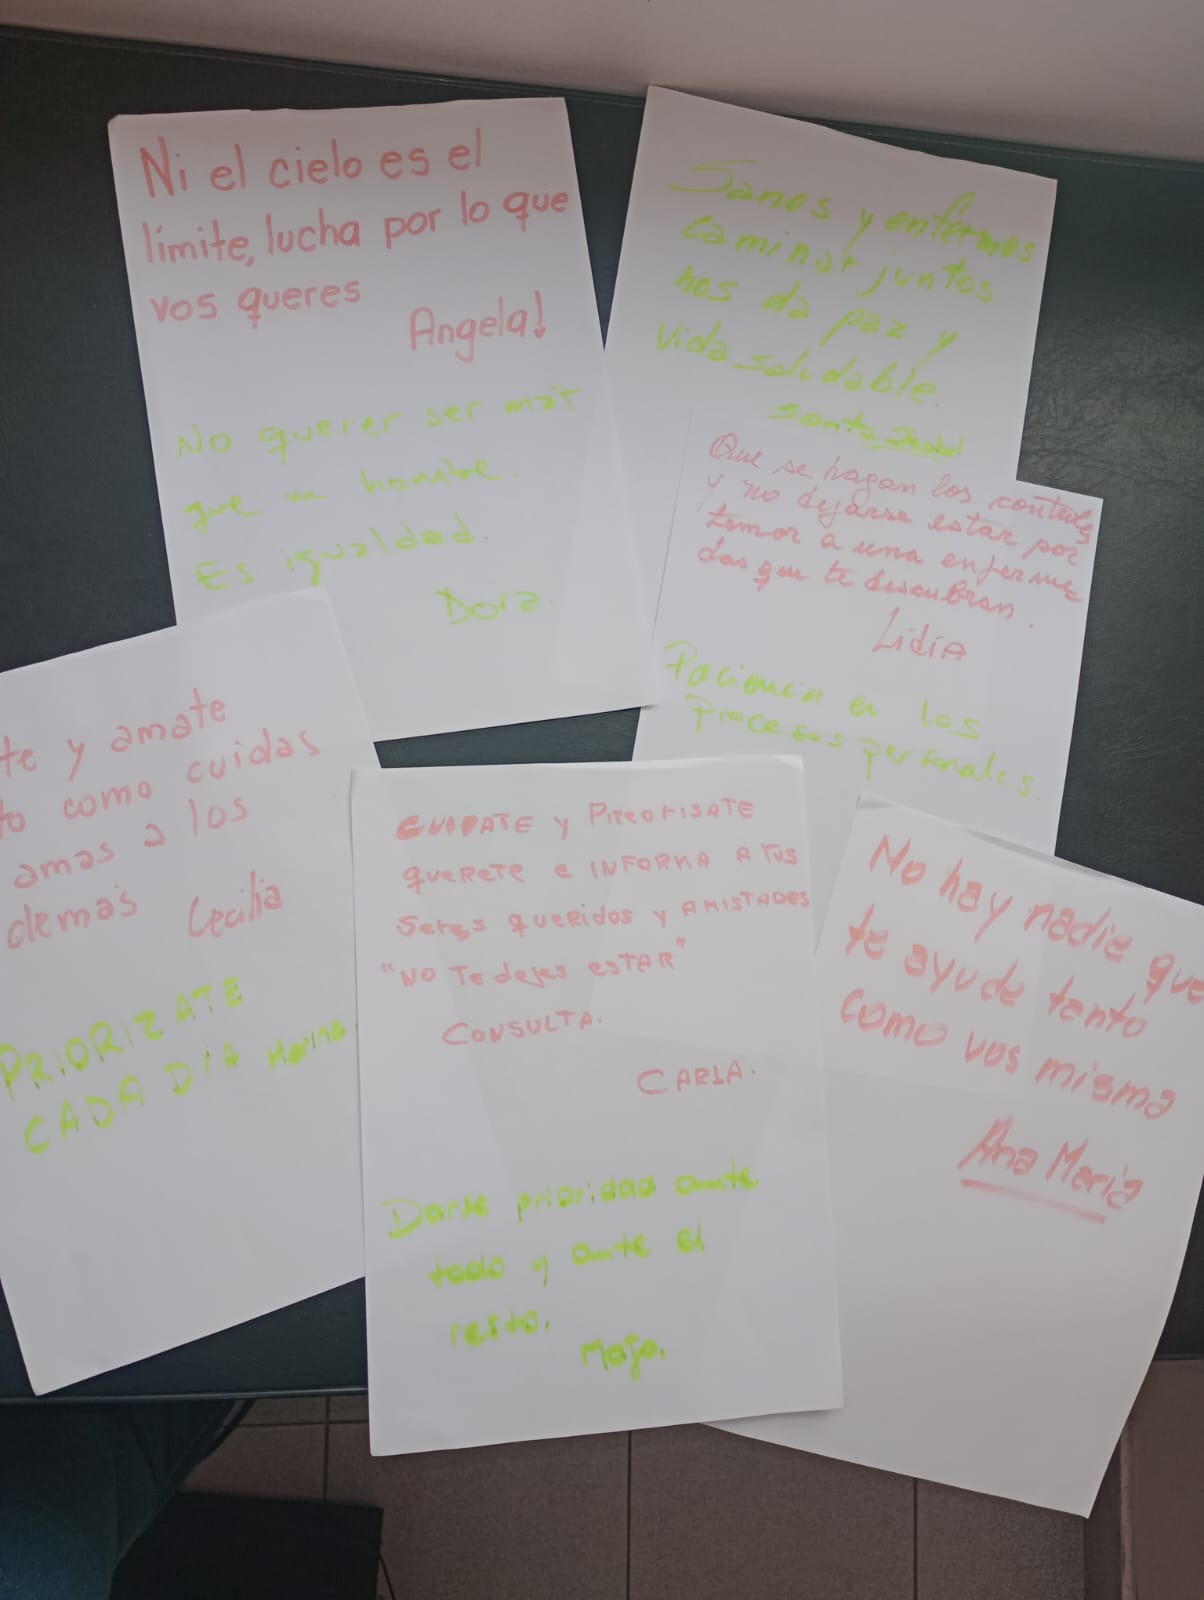 Ni el cielo es el
límite, lucha por lo que
vos queres
Angela!
No querer ser mas
que un hombre.
Es igualdad.
Dora.
Sanos y enfermos
caminar juntos
nos da paz y
vida saludable.
Que se hagan los controles
y no dejarse estar por
temor a una enferme
dad que te descubran.
Lidia
Paciencia en los
procesos personales.
te y amate
to como cuidas
amas a los
demás Cecilia
PRIORIZATE
CADA DÍA Marina
CUIDATE y
QUERETE e INFORMA A TUS
Seres queridos y AMISTADES
"NO Te dejes estar"
CONSULTA.
CARLA.
Darse prioridad ante
todo y ante el
resto.
Majo.
No hay nadie que
te ayude tanto
como vos misma
Ana Maria